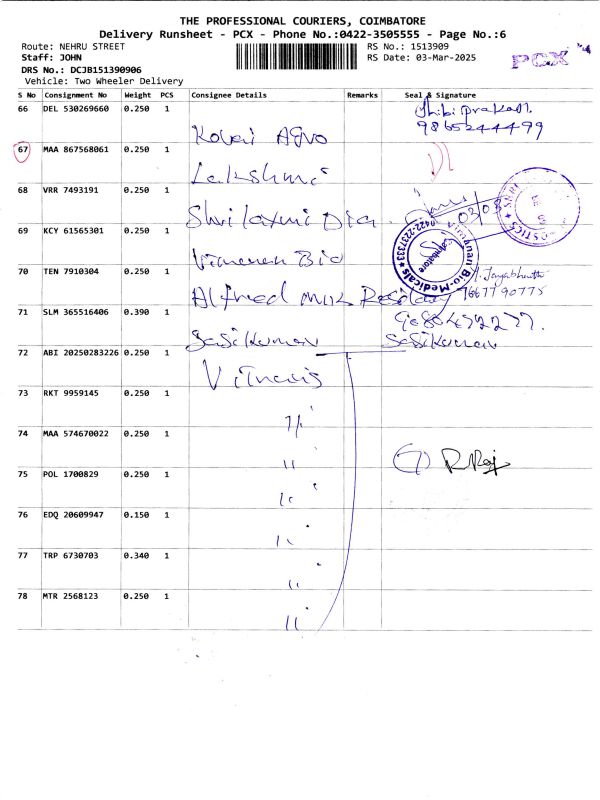 THE PROFESSIONAL COURIERS, COIMBATORE
Delivery Runsheet - PCX - Phone No.:0422-3505555 - Page No.:6
Route: NEHRU STREET
RS No.: 1513909
Staff: JOHN
RS Date: 03-Mar-2025
PCX
DRS No.: DCJB151390906
Vehicle: Two Wheeler Delivery
S No Consignment No Weight PCS Consignee Details Remarks Seal & Signature
66 DEL 530269660 0.250 1
9865244499
Kovai Agro
67 MAA 867568061 0.250 1
Lakshmi
68 VRR 7493191 0.250 1
Shri laxmi Dia
69 KCY 61565301 0.250 1
Vimanan Bio
Vimanan Bio-Medicals
0422-2237333
Coimbatore
70 TEN 7910304 0.250 1
Alfred
7667790775
71 SLM 365516406 0.390 1
9080472277.
Sasikumar Sasikumar
72 ABI 20250283226 0.250 1
73 RKT 9959145 0.250 1
74 MAA 574670022 0.250 1
7 R Raj
75 POL 1700829 0.250 1
76 EDQ 20609947 0.150 1
77 TRP 6730703 0.340 1
78 MTR 2568123 0.250 1